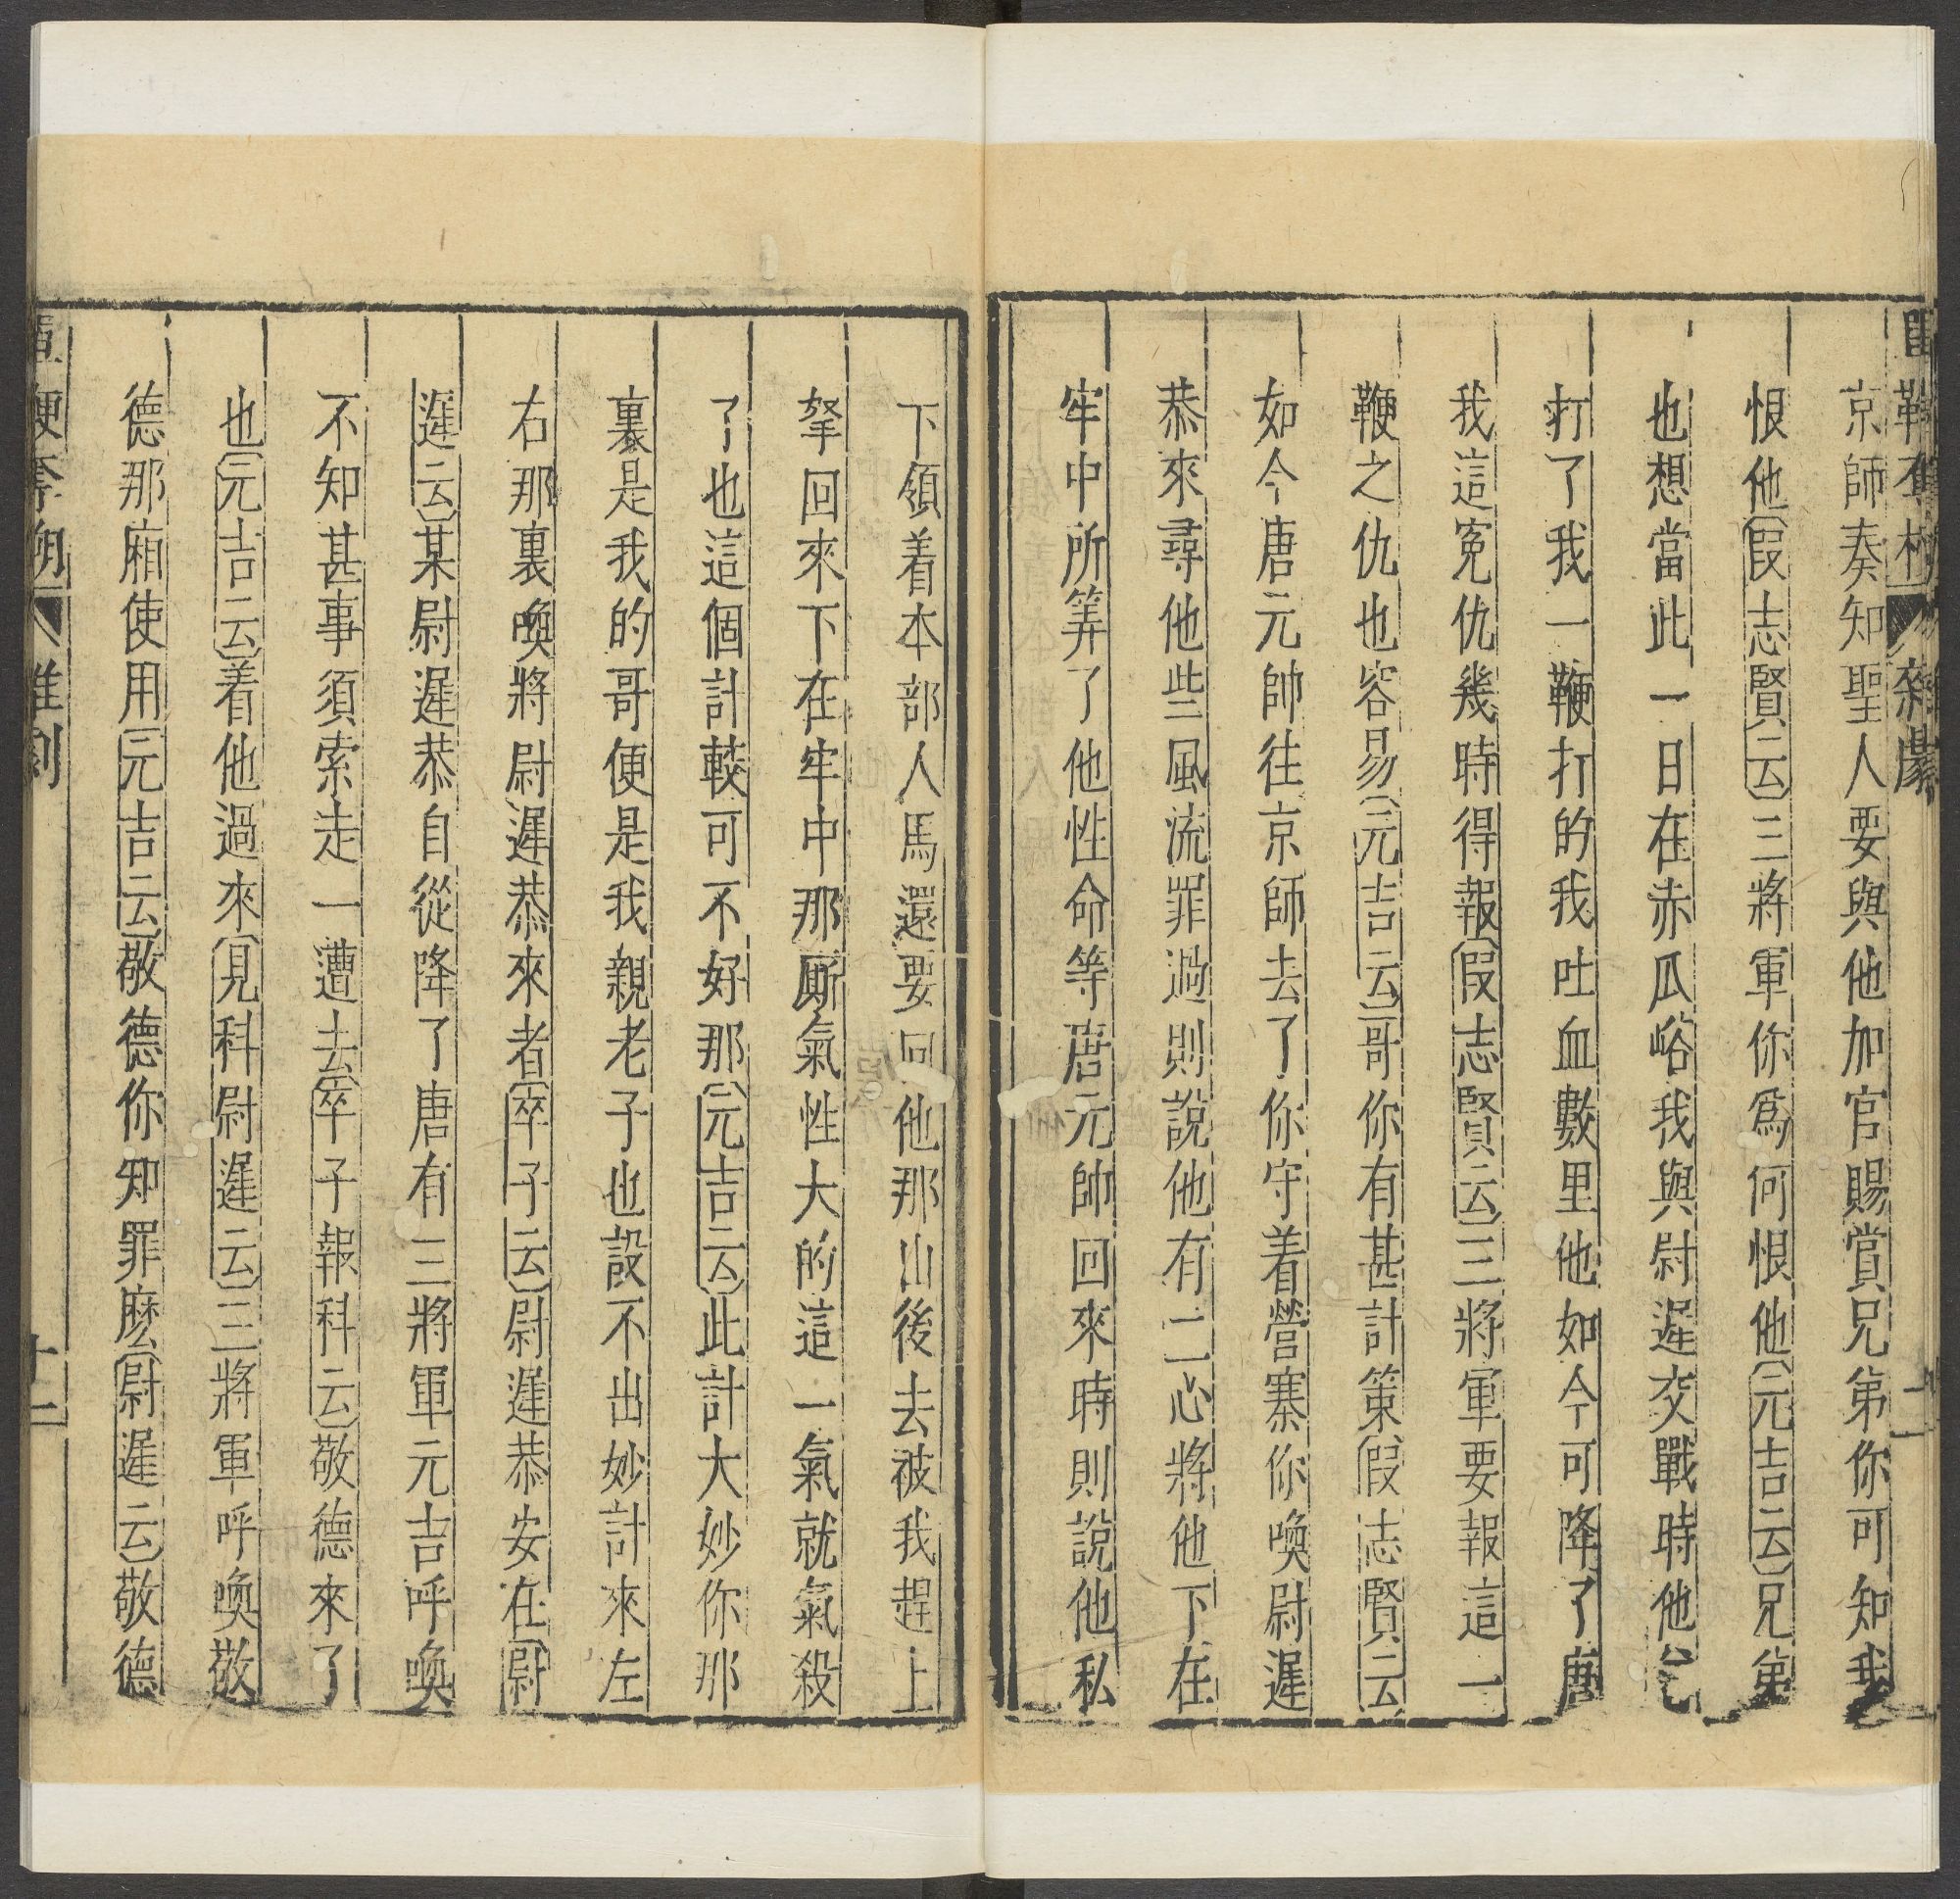 京師奏知聖人要與他加官賜賞兄弟你可知我
恨他叚志賢云三將軍你為何恨他元吉云兄弟
也想當此一日在赤瓜峪我與尉遲交戰時他
打了我一鞭打的我吐血數里他如今可降了唐
我這寃仇幾時得報叚志賢云三將軍要報這一
鞭之仇也容易元吉云哥你有甚計策叚志賢云
如今唐元帥往京師去了你守着營寨你喚尉遲
恭來尋他些風流罪過則說他有二心將他下在
牢中所筭了他性命等唐元帥回來時則說他私
下領着本部人馬還要回他那山後去被我趕上
拏回來下在牢中那厮氣性大的這一氣就氣殺
了也這個計較可不好那元吉云此計大妙你那
裏是我的哥便是我親老子也設不出妙計來左
右那裏喚將尉遲恭來者卒子云尉遲恭安在尉
遲云某尉遲恭自從降了唐有三將軍元吉呼喚
不知甚事須索走一遭去卒子報科云敬德來了
也元吉云着他過來見科尉遲云三將軍呼喚敬
德那廂使用元吉云敬德你知罪麽尉遲云敬德
雜劇
十二